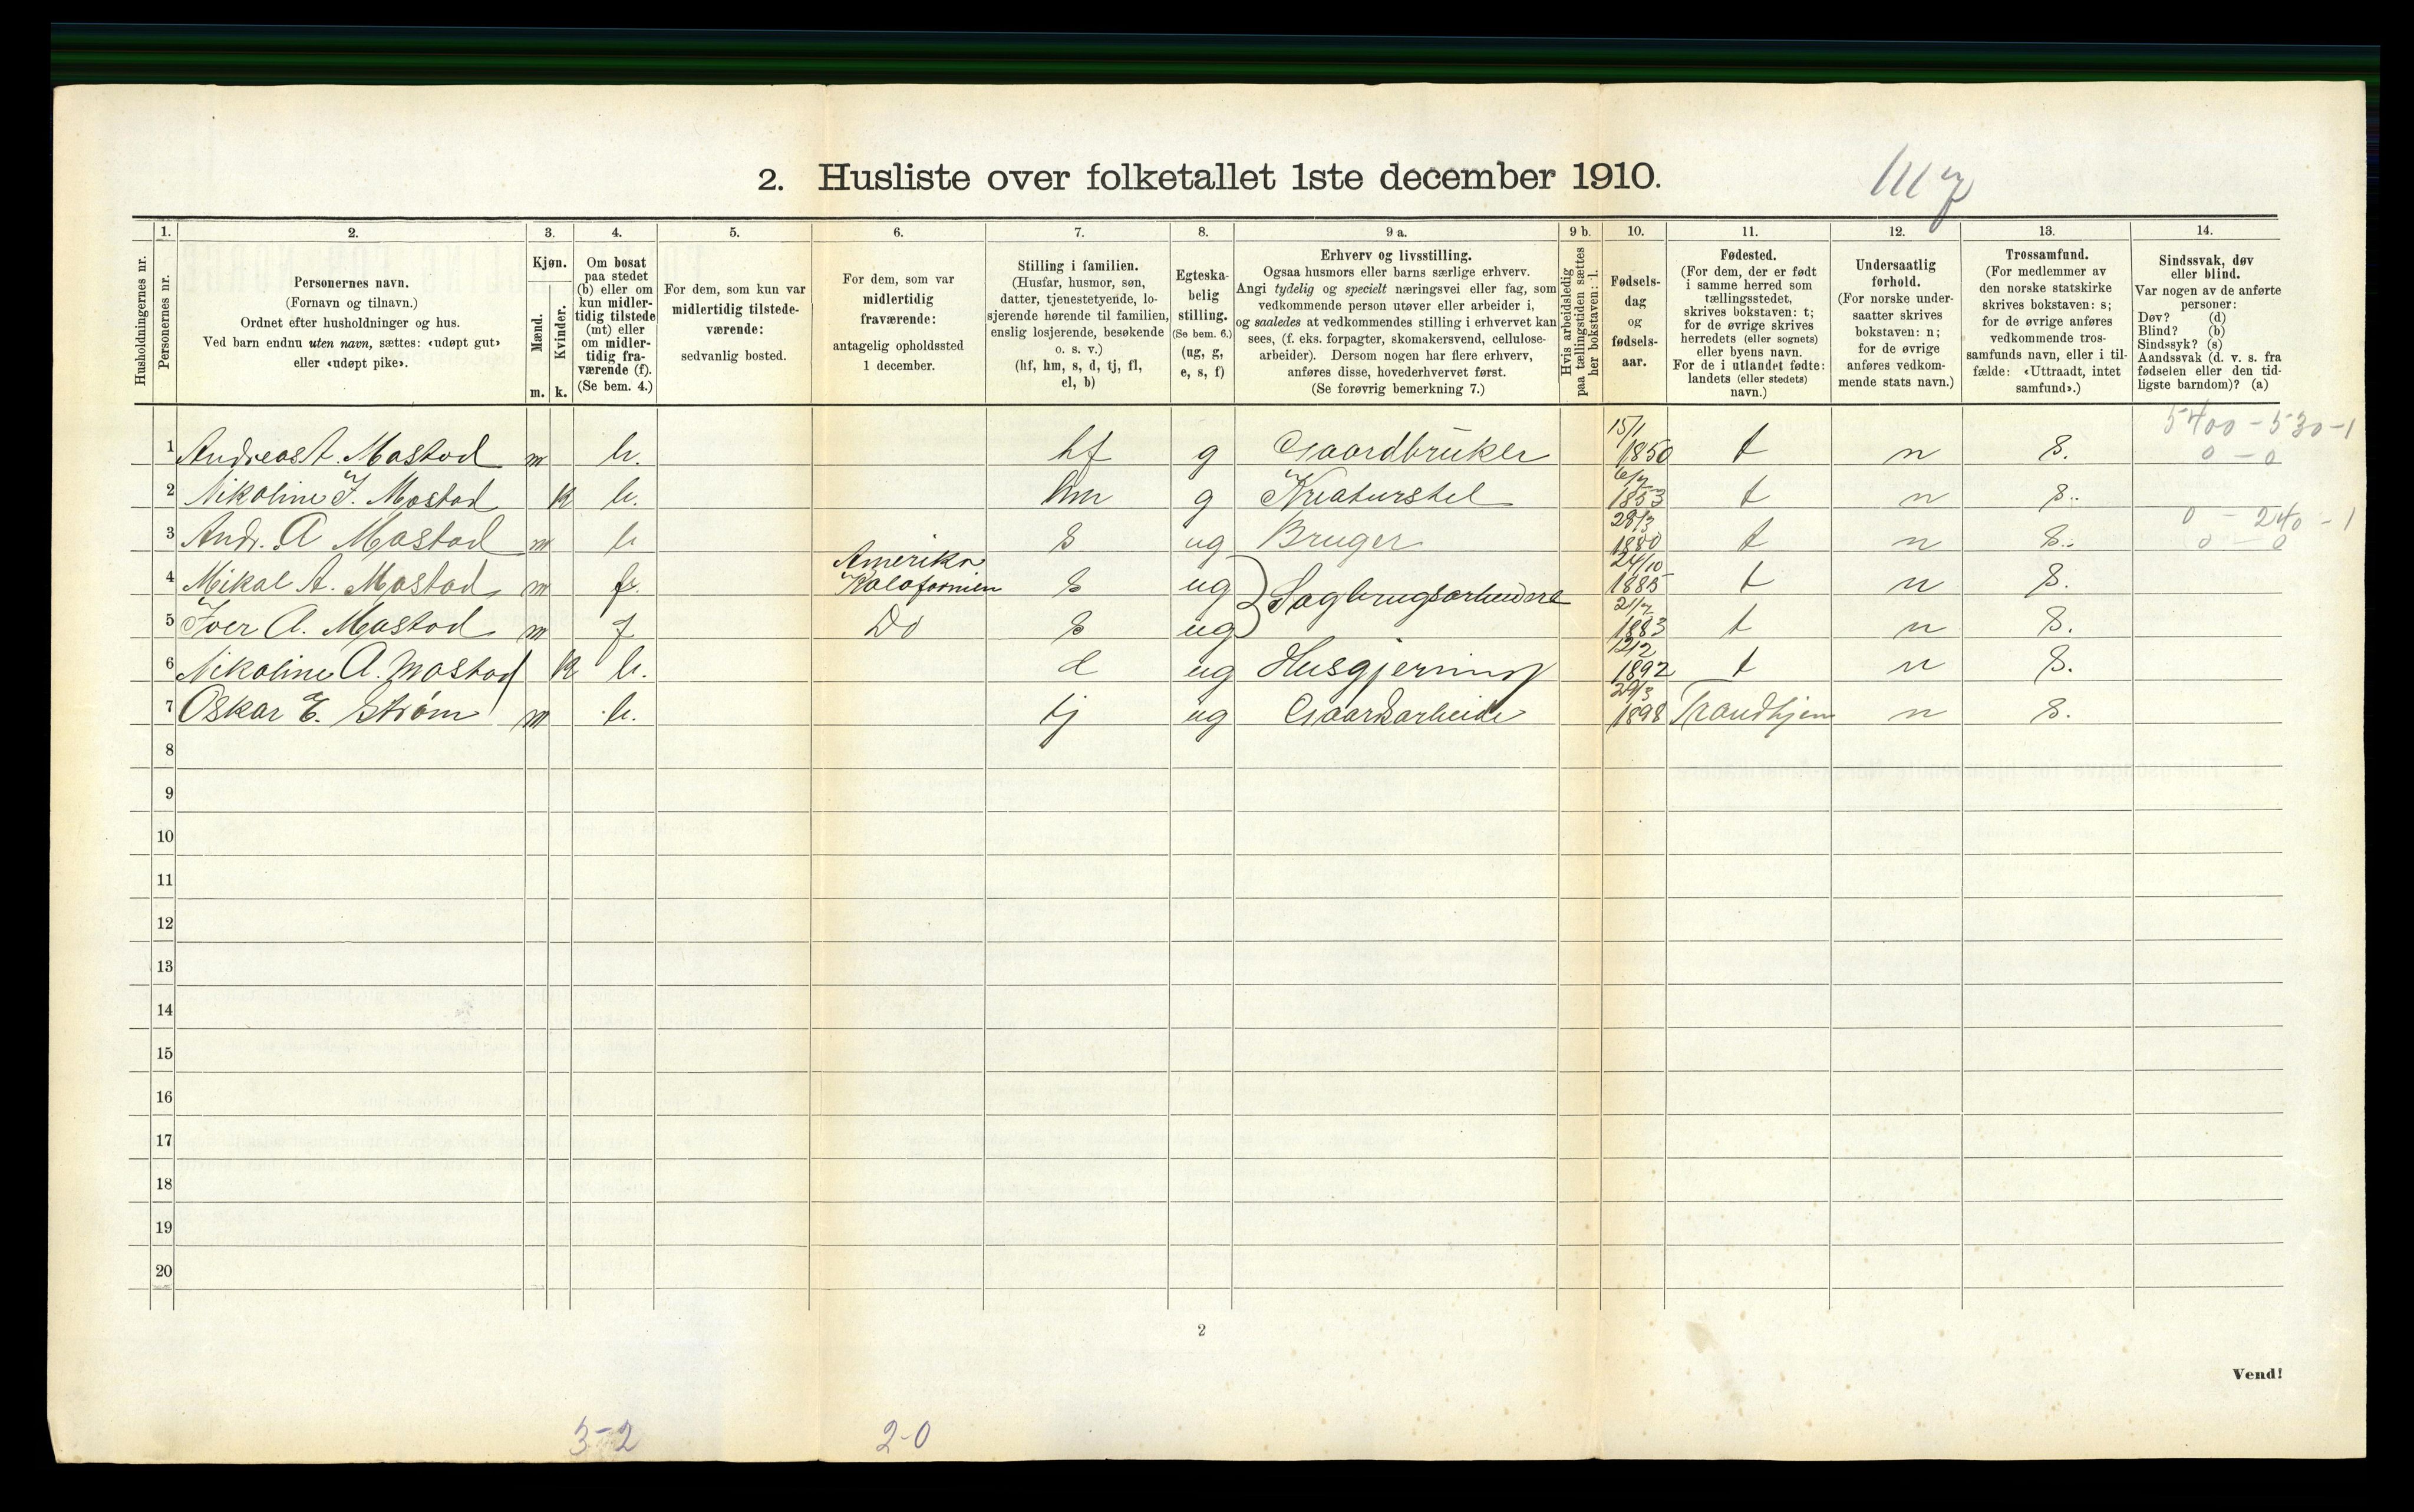 2. Husliste over folketallet 1ste december 1910.
Husholdningernes nr.
1.
Personernes nr.
2.
Personernes navn.
(Fornavn og tilnavn.)
Ordnet efter husholdninger og hus.
Ved barn endnu uten navn, sættes: «udøpt gut»
eller «udøpt pike».
3.
Kjøn.
Mænd.
Kvinder.
m. k.
4.
Om bosat
paa stedet
(b) eller om
kun midler-
tidig tilstede
(mt) eller
om midler-
tidig fra-
værende (f).
(Se bem. 4.)
5.
For dem, som kun var
midlertidig tilstede-
værende:
sedvanlig bosted.
6.
For dem, som var
midlertidig
fraværende:
antagelig opholdssted
1 december.
7.
Stilling i familien.
(Husfar, husmor, søn,
datter, tjenestetyende, lo-
sjerende hørende til familien,
enslig losjerende, besøkende
o. s. v.)
(hf, hm, s, d, tj, fl,
el, b)
8.
Egteska-
belig
stilling.
(Se bem. 6.)
(ug, g,
e, s, f)
9 a.
Erhverv og livsstilling.
Ogsaa husmors eller barns særlige erhverv.
Angi tydelig og specielt næringsvei eller fag, som
vedkommende person utøver eller arbeider i,
og saaledes at vedkommendes stilling i erhvervet kan
sees, (f. eks. forpagter, skomakersvend, cellulose-
arbeider). Dersom nogen har flere erhverv,
anføres disse, hovederhvervet først.
(Se forøvrig bemerkning 7.)
9 b.
Hvis arbeidsledig
paa tællingstiden sættes
her bokstaven: l.
10.
Fødsels-
dag
og
fødsels-
aar.
11.
Fødested.
(For dem, der er født
i samme herred som
tællingsstedet,
skrives bokstaven: t;
for de øvrige skrives
herredets (eller sognets)
eller byens navn.
For de i utlandet fødte:
landets (eller stedets)
navn.)
12.
Undersaatlig
forhold.
(For norske under-
saatter skrives
bokstaven: n;
for de øvrige
anføres vedkom-
mende stats navn.)
13.
Trossamfund.
(For medlemmer av
den norske statskirke
skrives bokstaven: s;
for de øvrige anføres
vedkommende tros-
samfunds navn, eller i til-
fælde: «Uttraadt, intet
samfund».)
14.
Sindssvak, døv
eller blind.
Var nogen av de anførte
personer:
Døv? (d)
Blind? (b)
Sindssyk? (s)
Aandssvak (d. v. s. fra
fødselen eller den tid-
ligste barndom)? (a)
5400 - 530 - 1
1 Andreas A. Mastad m b. hf g Gaardbruker 15/1 1850 t n S. 0 - 0
2 Nikoline J. Mastad k b. hm g Kreaturstel 1853 t n S.
0 - 240 - 1
3 Andr. A Mastad m b s ug Bruger 28/3 1880 t n S. 0 - 0
4 Mikal A. Mastad m f. Amerika Kalofornien s ug Sagbrugsarbeidere 24/10 1885 t n S.
5 Iver A. Mastad m f Do s ug 1883 t n S.
6 Nikoline A. Mastad k b. d ug Husgjerning 12/2 1892 t n S.
7 Oskar E. Strøm m b. tj ug Gaardsarbeide 29/3 1898 Trondhjem n S.
8
9
10
11
12
13
14
15
16
17
18
19
20
2
Vend!
3-2 2-0